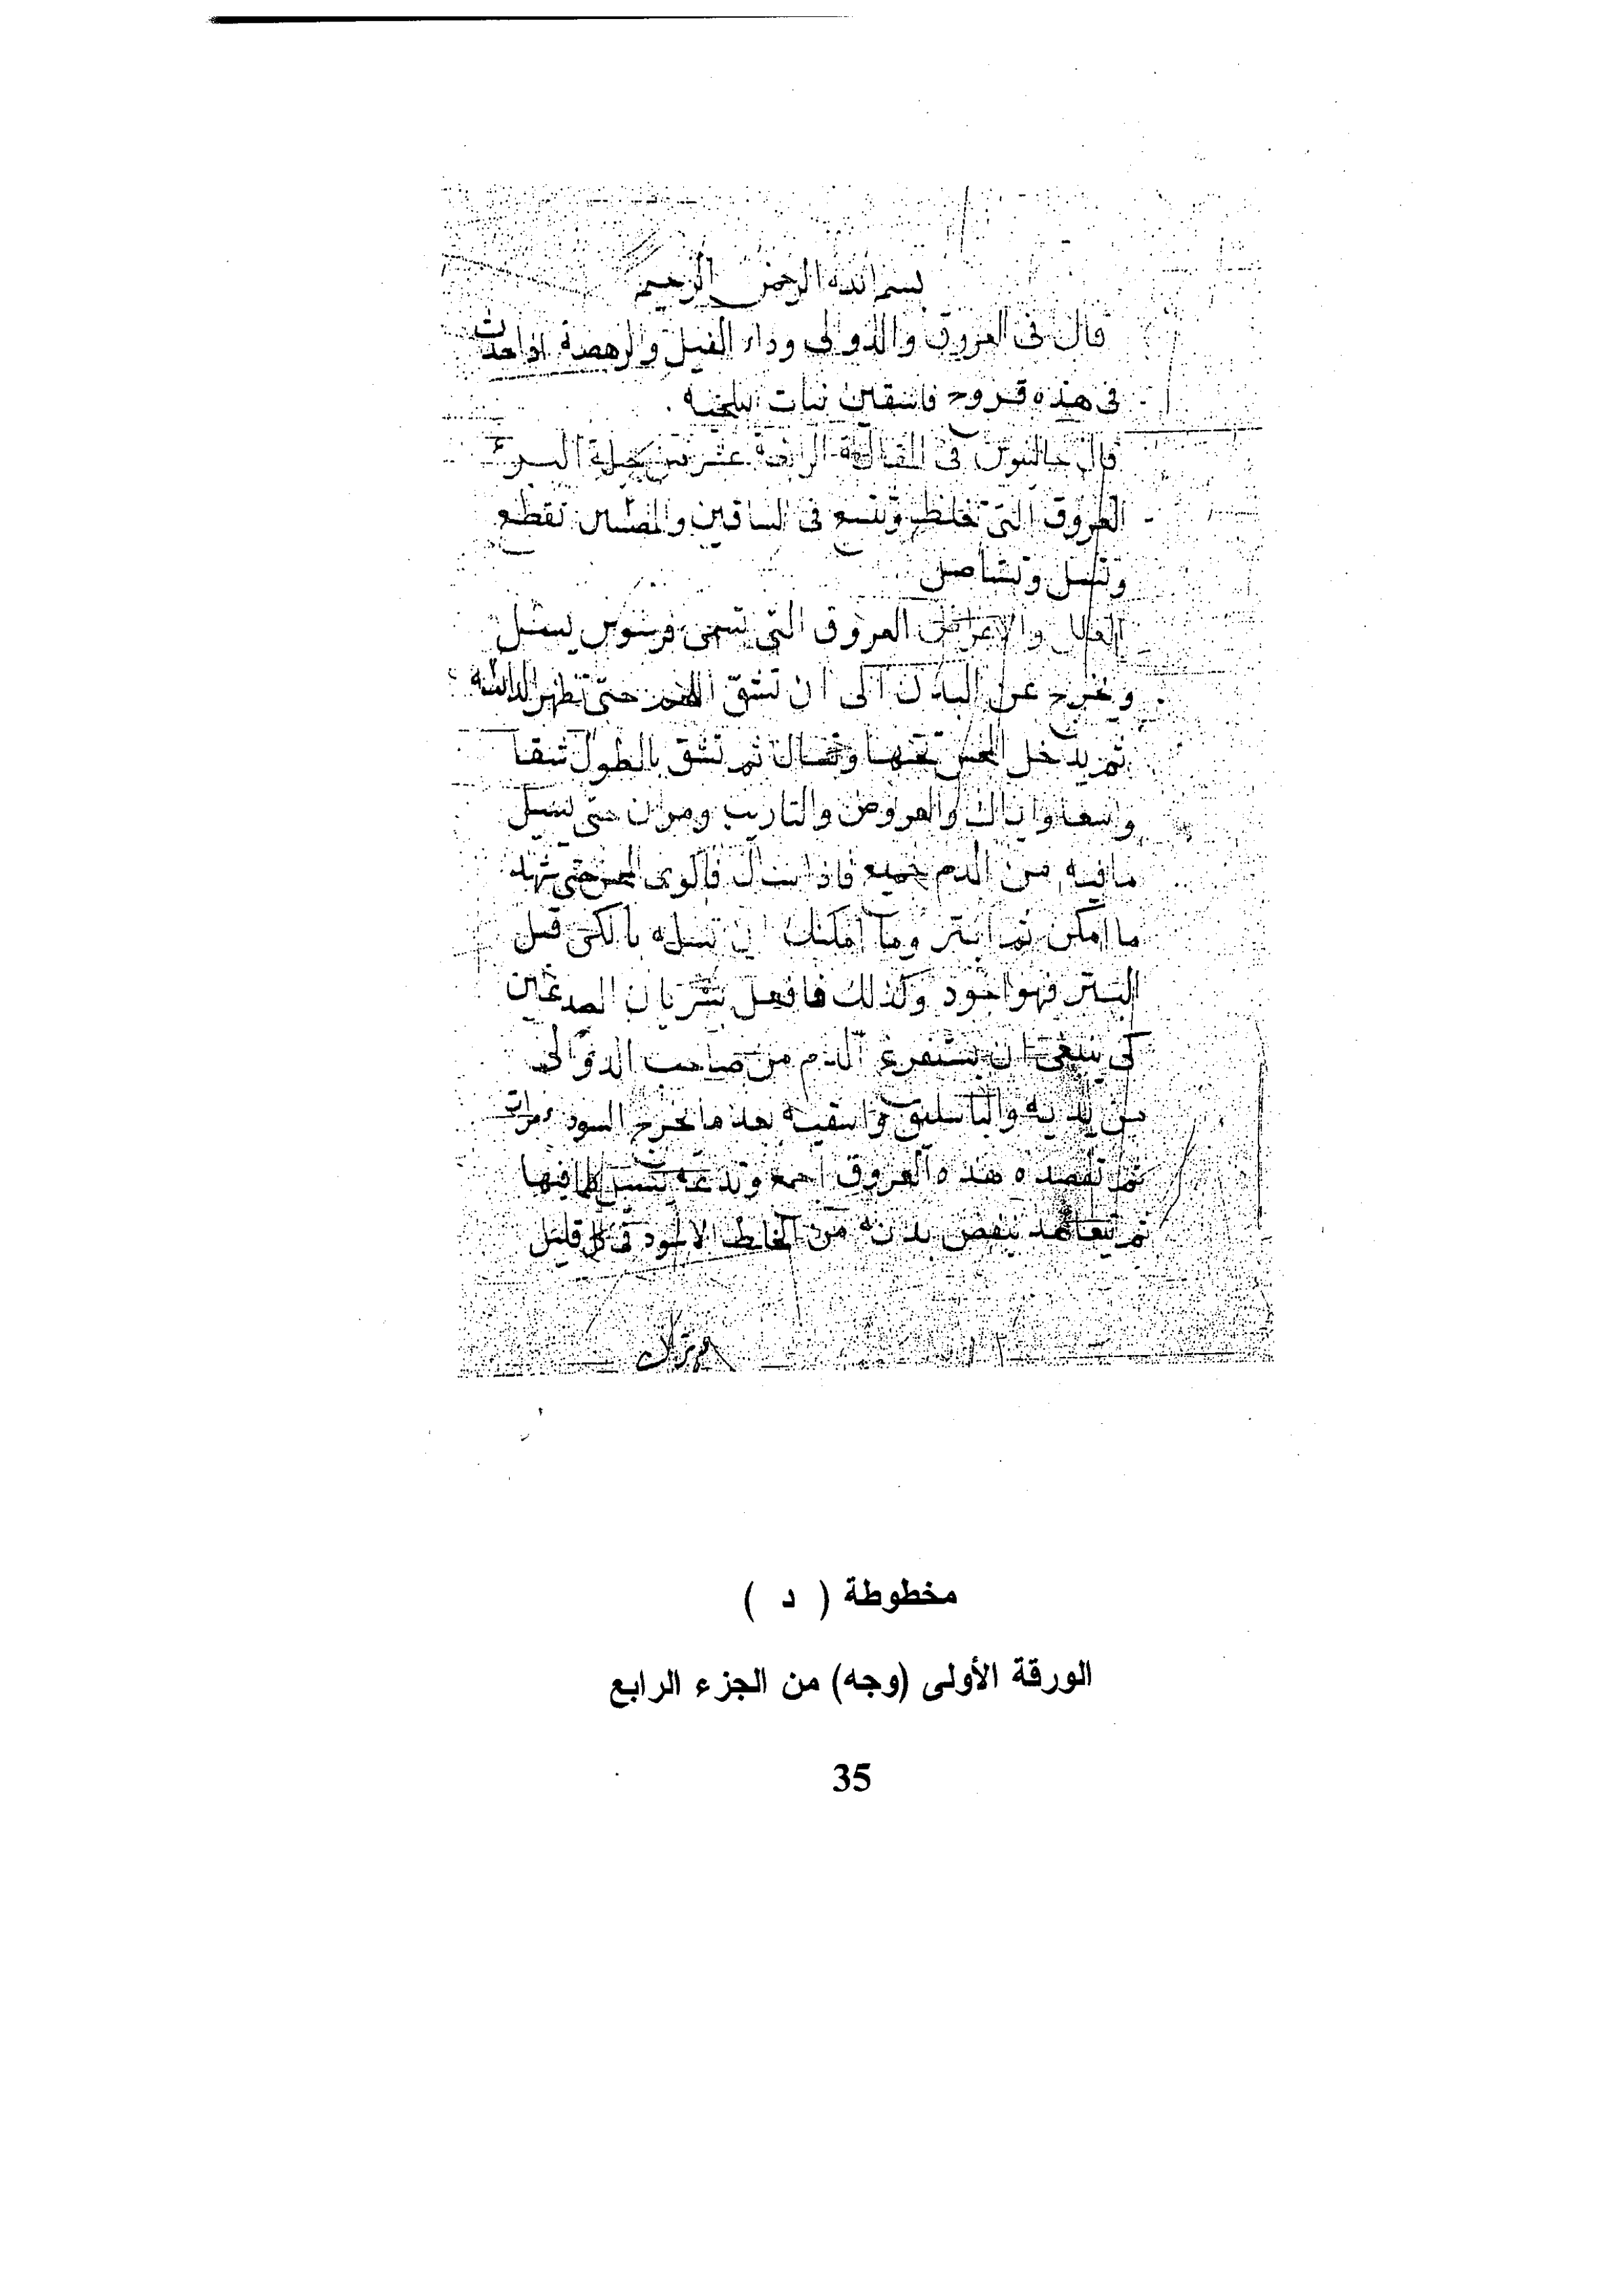 بسم الله الرحمن الرحيم
قال فى العروق والدوالى وداء الفيل والرهصة اذا حدث
فى هذه قروح فاسقين نبات اللحيه .
قال جالينوس فى المقالة الرابعة عشر من حيلة البرء
العروق التى تغلظ وتتسع فى الساقين تقطع
وتسل وتستاصل
العلل والاعراض العروق التى تسمى يسل
ويخرج عن البدن الى ان تشق اللحم حتى تظهر
ثم يدخل تحتها وتشال ثم تشق بالطول شقا
واسعا واياك والعروض والتاريب حتى يسيل
ما فيه من الدم جميع فاذا سال
ما امكن ثم ابتر وما امكنك ان تسله بالكى قبل
البتر فهو اجود وكذلك فافعل بشريان الصدغين
كى ينبغى ان يستفرغ الدم من صاحب الدوالى
من يديه والباسليق واسقيه بعد ما يخرج السوداء مرات
ثم تفصده هذه العروق اجمع وتدعه يسيل كلما فيها
ثم تتعاهد بنفض بدنه من الخلط الاسود فى كل قليل
مخطوطة ( د )
الورقة الأولى (وجه) من الجزء الرابع
35